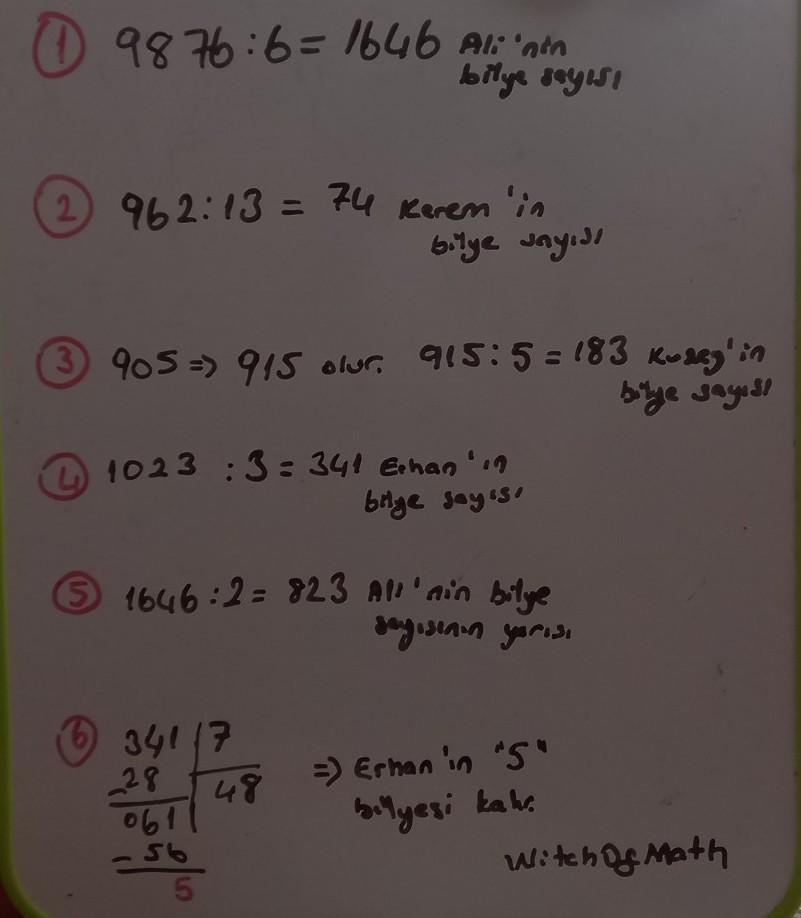 1 9876:6= 1646 Ali'nin
bilye sayısı
2 962:13 = 74 Kerem'in
bilye sayısı
3 905 => 915 olur. 915:5=183 Kuzey'in
bilye sayısı
4 1023 :3= 341 Erhan'ın
bilye sayısı
5 1646:2= 823 Ali'nin bilye
sayısının yarısı
6 341 | 7
-28 48 => Erhan'ın "5"
061 bilyesi kalır.
-56
5
WitchOfMath